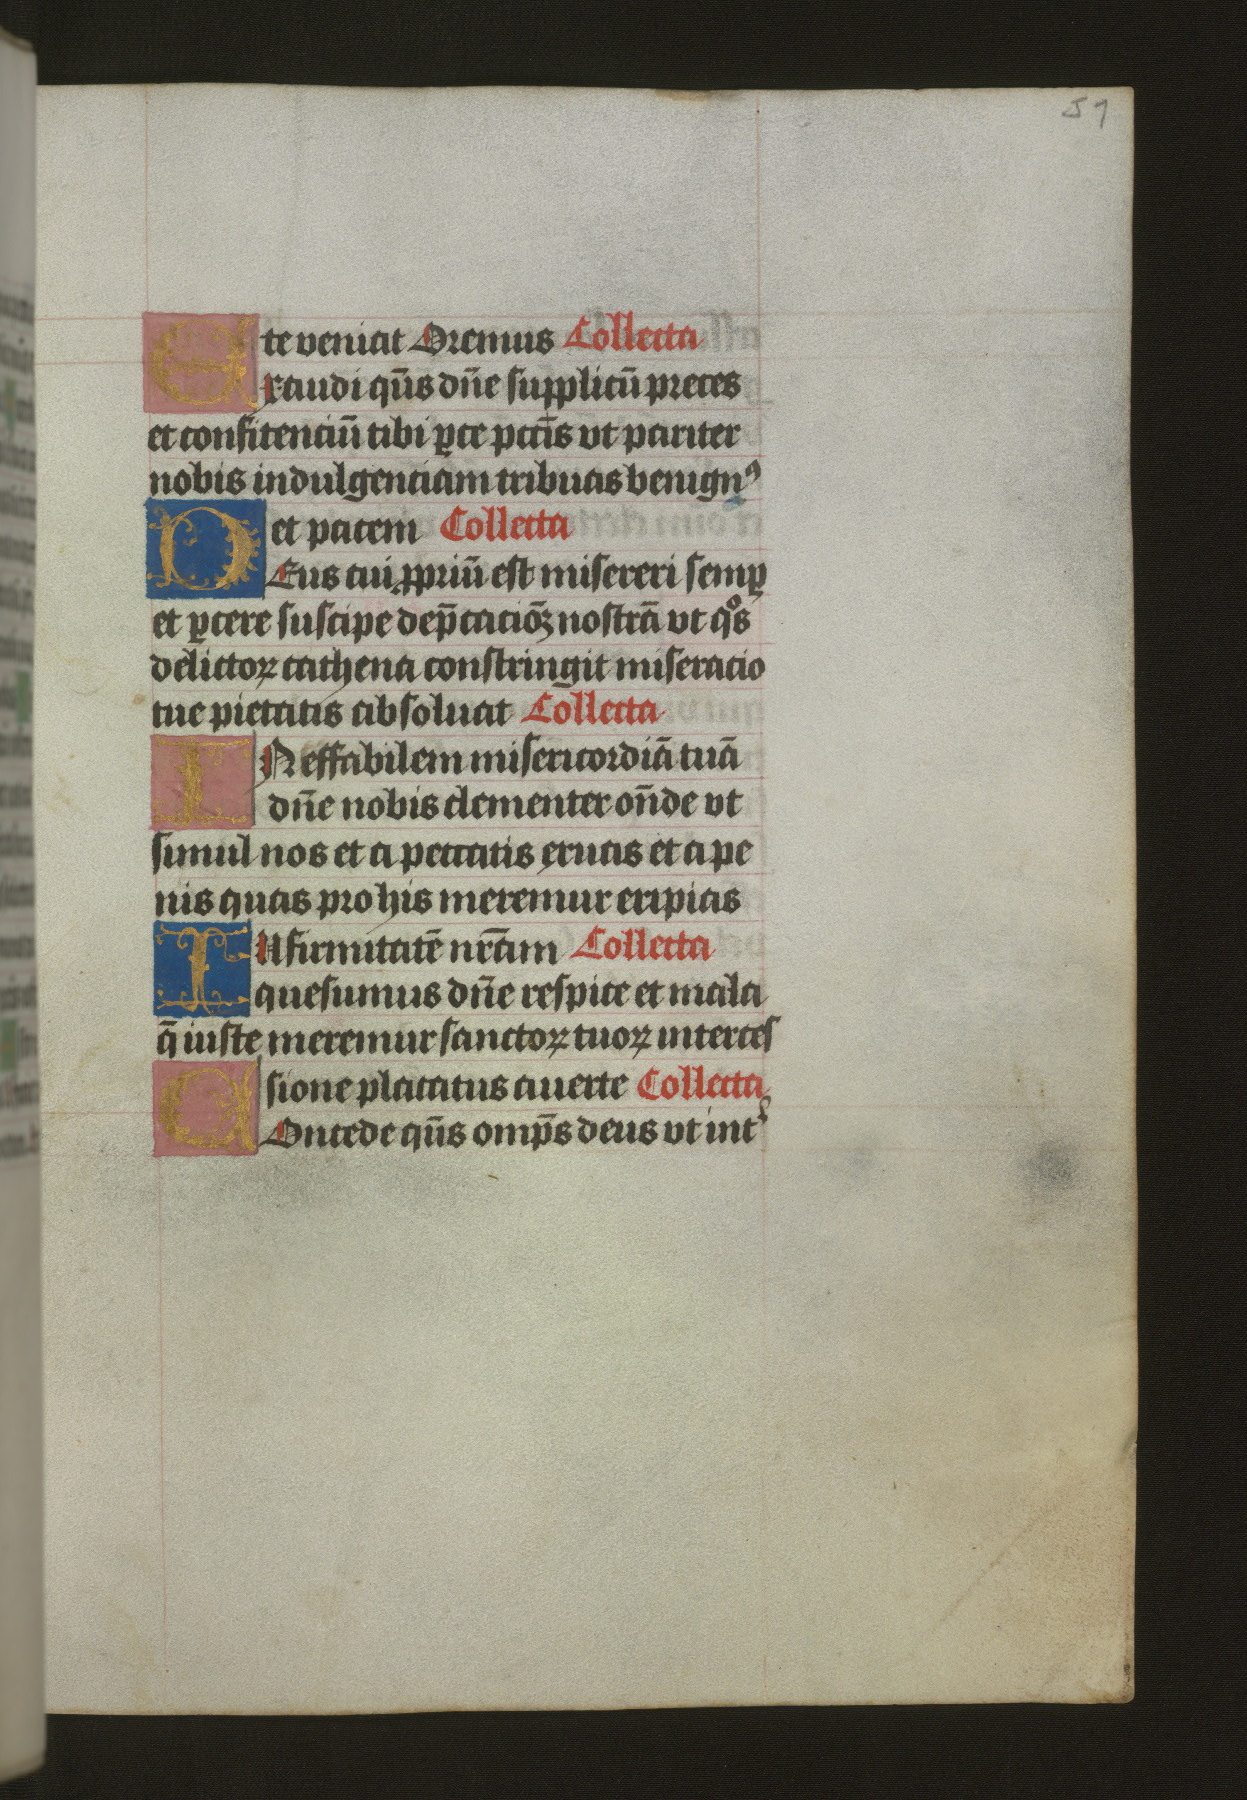 51
te veniat Oremus Collecta
Exaudi qūs dn̄e supplicū preces
et confitenciū tibi ꝑce pctīs vt pariter
nobis indulgenciam tribuas benignꝰ
et pacem Collecta
DEus cui ꝓpriū est misereri semꝑ
et ꝑcere suscipe dep̄cacioꝫ nostrā vt qͦs
delictoꝝ cathena constringit miseracio
tue pietatis absoluat Collecta
INeffabilem misericordiā tuā
dn̄e nobis clementer on̄de vt
simul nos et a peccatis eruas et a pe
nis quas pro his meremur eripias
INfirmitatē nrām Collecta
quesumus dn̄e respice et mala
q̄ iuste meremur sanctoꝝ tuoꝝ interces
sione placatus auerte Collecta
COncede qūs omp̄s deus vt int